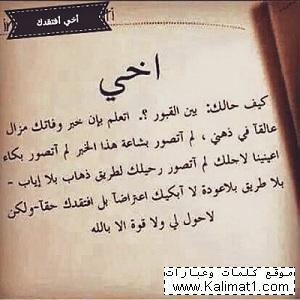 أخي أفتقدك
اخي
كيف حالك: بين القبور ؟. اتعلم بإن خبر وفاتك مزال
عالقآ في ذهني ، لم آتصور بشاعة هذا الخبر لم آتصور بكاء
اعيننا لاجلك لم آتصور رحيلك لطريق ذهاب بلا إياب -
بلا طريق بلاعودة لا آبكيك اعتراضآ بل افتقدك حقآ-ولكن
لاحول لي ولا قوة الا بالله
موقع كلمات وعبارات
www.Kalimat1.com